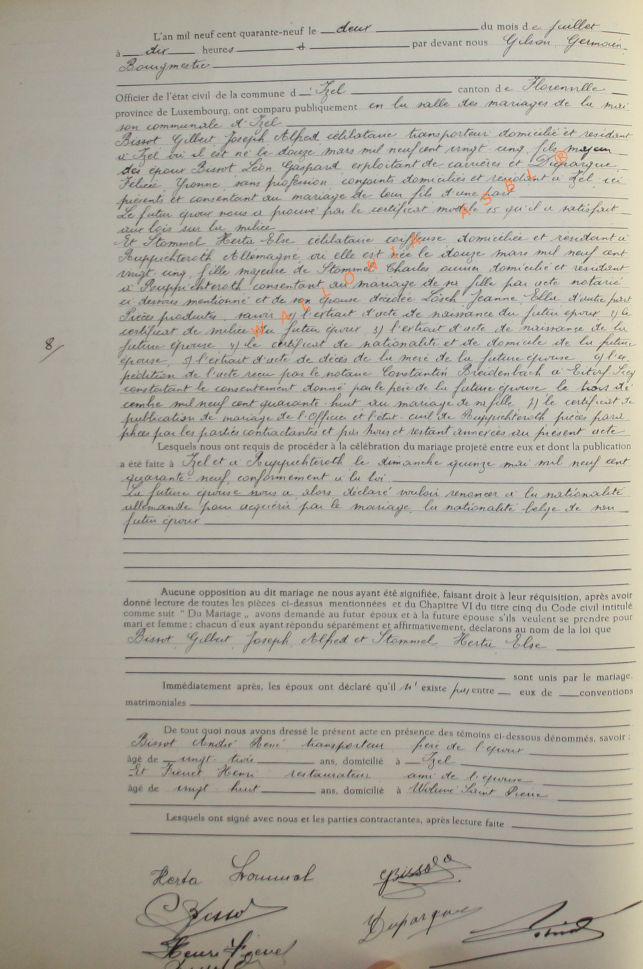 L'an mil neuf cent quarante-neuf le deux du mois de juillet
à dix heures par devant nous Gilson Germain
Bourgmestre
Officier de l'état civil de la commune d'Izel canton de Florenville
province de Luxembourg, ont comparu publiquement en la salle des mariages de la mai
son communale d'Izel
Bissot Gilbert Joseph Alfred célibataire transporteur domicilié et résidant
à Izel où il est né le douze mars mil neuf cent vingt cinq, fils majeur
des époux Bissot Léon Gaspard exploitant de carrières et Duparque
Félicie Yvonne, sans profession, conjoints domiciliés et résidant à Izel, ici
présents et consentant au mariage de leur fils d'une part
Le futur époux nous a prouvé par le certificat modèle 15 qu'il a satisfait
aux lois sur la milice
Et Stommel Herta Else célibataire coiffeuse domiciliée et résidant à
Ruppichteroth Allemagne où elle est née le douze mars mil neuf cent
vingt cinq, fille majeure de Stommel Charles domicilié et résidant
à Ruppichteroth consentant au mariage de sa fille par acte notarié
ci dessous mentionné et de son épouse décédée Lösch Jeanne Else d'autre part
Pièces produites, savoir 1) l'extrait d'acte de naissance du futur époux 2) le
certificat de milice du futur époux 3) l'extrait d'acte de naissance de la
future épouse 4) le certificat de nationalité et de domicile de la future
épouse 5) l'extrait d'acte de décès de la mère de la future épouse 6) l'ex
pédition de l'acte reçu par le notaire Constantin Breidenbach à Eitorf Sieg
constatant le consentement donné par le père de la future épouse le trois dé
cembre mil neuf cent quarante huit au mariage de sa fille, 7) le certificat de
publication de mariage de l'Officier de l'état-civil de Ruppichteroth pièces para
phées par les parties contractantes et par Nous et restant annexées au présent acte
8/
Lesquels nous ont requis de procéder à la célébration du mariage projeté entre eux et dont la publication
a été faite à Izel et à Ruppichteroth le dimanche quinze mai mil neuf cent
quarante-neuf, conformément à la loi
La future épouse nous a alors déclaré vouloir renoncer à la nationalité
allemande pour acquérir par le mariage, la nationalité belge de son
futur époux
Aucune opposition au dit mariage ne nous ayant été signifiée, faisant droit à leur réquisition, après avoir
donné lecture de toutes les pièces ci-dessus mentionnées et du Chapitre VI du titre cinq du Code civil intitulé
comme suit " Du Mariage „ avons demandé au futur époux et à la future épouse s'ils veulent se prendre pour
mari et femme ; chacun d'eux ayant répondu séparément et affirmativement, déclarons au nom de la loi que
Bissot Gilbert Joseph Alfred et Stommel Herta Else
sont unis par le mariage.
Immédiatement après, les époux ont déclaré qu'il n'existe pas entre eux de conventions
matrimoniales
De tout quoi nous avons dressé le présent acte en présence des témoins ci-dessous dénommés, savoir :
Bissot André René transporteur frère de l'époux
âgé de vingt trois ans, domicilié à Izel
Et Frenet Henri restaurateur ami de l'épouse
âgé de vingt huit ans, domicilié à Woluwé Saint Pierre
Lesquels ont signé avec nous et les parties contractantes, après lecture faite
Herta Stommel
GBissot
Bissot
Duparque
Henri Frenet
WALLONIA ASBL ®